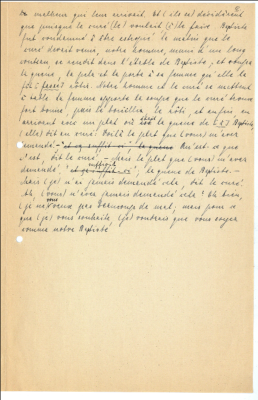 meilleur que leur arrivait. Et (ils se) décidèrent
que puisque le curé (le) voulait (il) le faire Baptiste
fut condamné à être estropié. Le matin que le
curé devait venir, notre homme, muni d'un long
couteau, se rendit dans l'étable de Baptiste, et coupa
la queue, la pela et la porta à sa femme qu'elle la
rôti. Notre homme et le curé se mettent
à table. La femme apporta la soupe que le curé trouva
fort bonne, puis la bouillie, le rôti, et enfin en
arrivent au plat où était la queue de Baptiste
(elle) dit au curé: Voilà le plat que (vous) m'avez
demandé. Qu'est-ce que
c'est, dit le curé, - Mais le plat que (vous) m'avez
demandé, la queue de Baptiste. -
Mais (je) n'ai jamais demandé cela, dit le curé.
Ah (vous) n'avez jamais demandé cela! Eh bien,
(je ne) vous veux pas beaucoup de mal; mais pour ce
que (je) vous souhaite, (je) voudrais que vous soyez
comme notre Baptiste